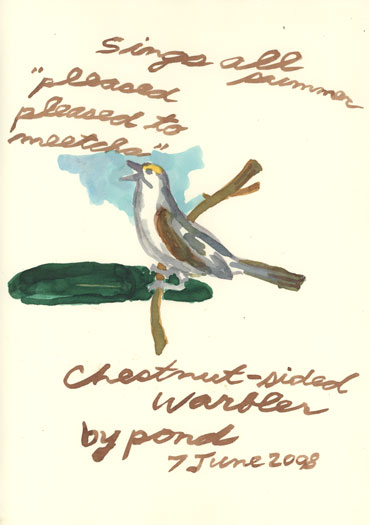 Sings all
summer
"pleased
pleased to
meetcha"
Chestnut-sided
Warbler
by pond
7 June 2008